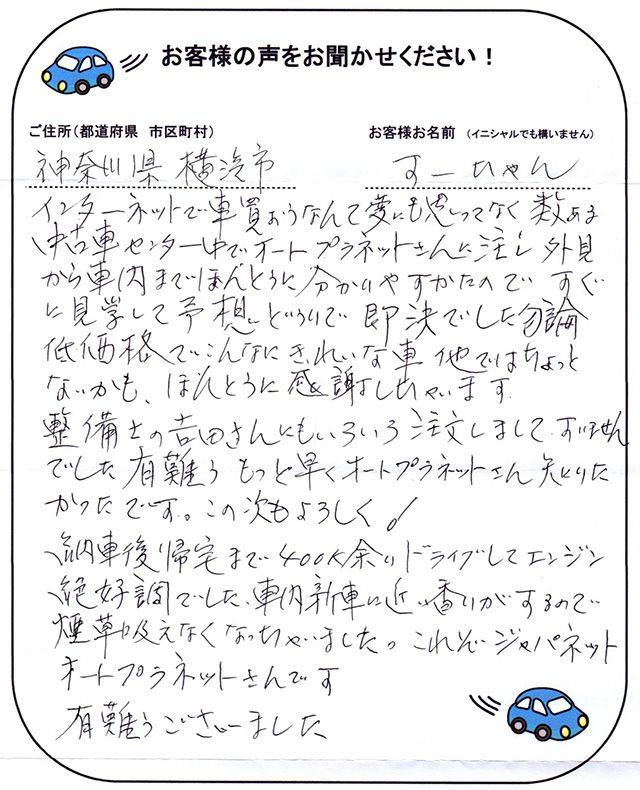 お客様の声をお聞かせください！
ご住所(都道府県 市区町村)
お客様お名前 (イニシャルでも構いません)
神奈川県 横浜市
すーちゃん
インターネットで車買おうなんて夢にも思ってなく 数ある
中古車センター中でオートプラネットさんに注し 外見
から車内までほんとうに分かりやすかたので すぐ
に見学して予想どうりで 即決でした勿論
低価格でこんなにきれいな車 他ではちょっと
ないかも、ほんとうに感謝しちゃいます
整備士の吉田さんにもいろいろ注文しまして すいません
でした 有難う もっと早くオートプラネットさん 知りた
かったです。この次もよろしく！
納車後帰宅まで400K余りドライブしてエンジン
絶好調でした、車内新車に近い香りがするので
煙草吸えなくなっちゃいました。これぞジャパネット
オートプラネットさんです
有難うございました